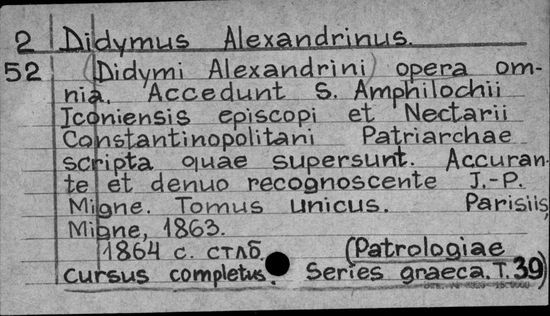 2 Didymus Alexandrinus.
52 (Didymi Alexandrini) opera om-
nia. Accedunt S. Amphilochii
Iconiensis episcopi et Nectarii
Constantinopolitani Patriarchae
scripta quae supersunt. Accuran-
te et denuo recognoscente J.-P.
Migne. Tomus unicus. Parisiis,
Migne, 1863.
1864 с. стлб. (Patrologiae
cursus completus. Series graeca. T. 39)